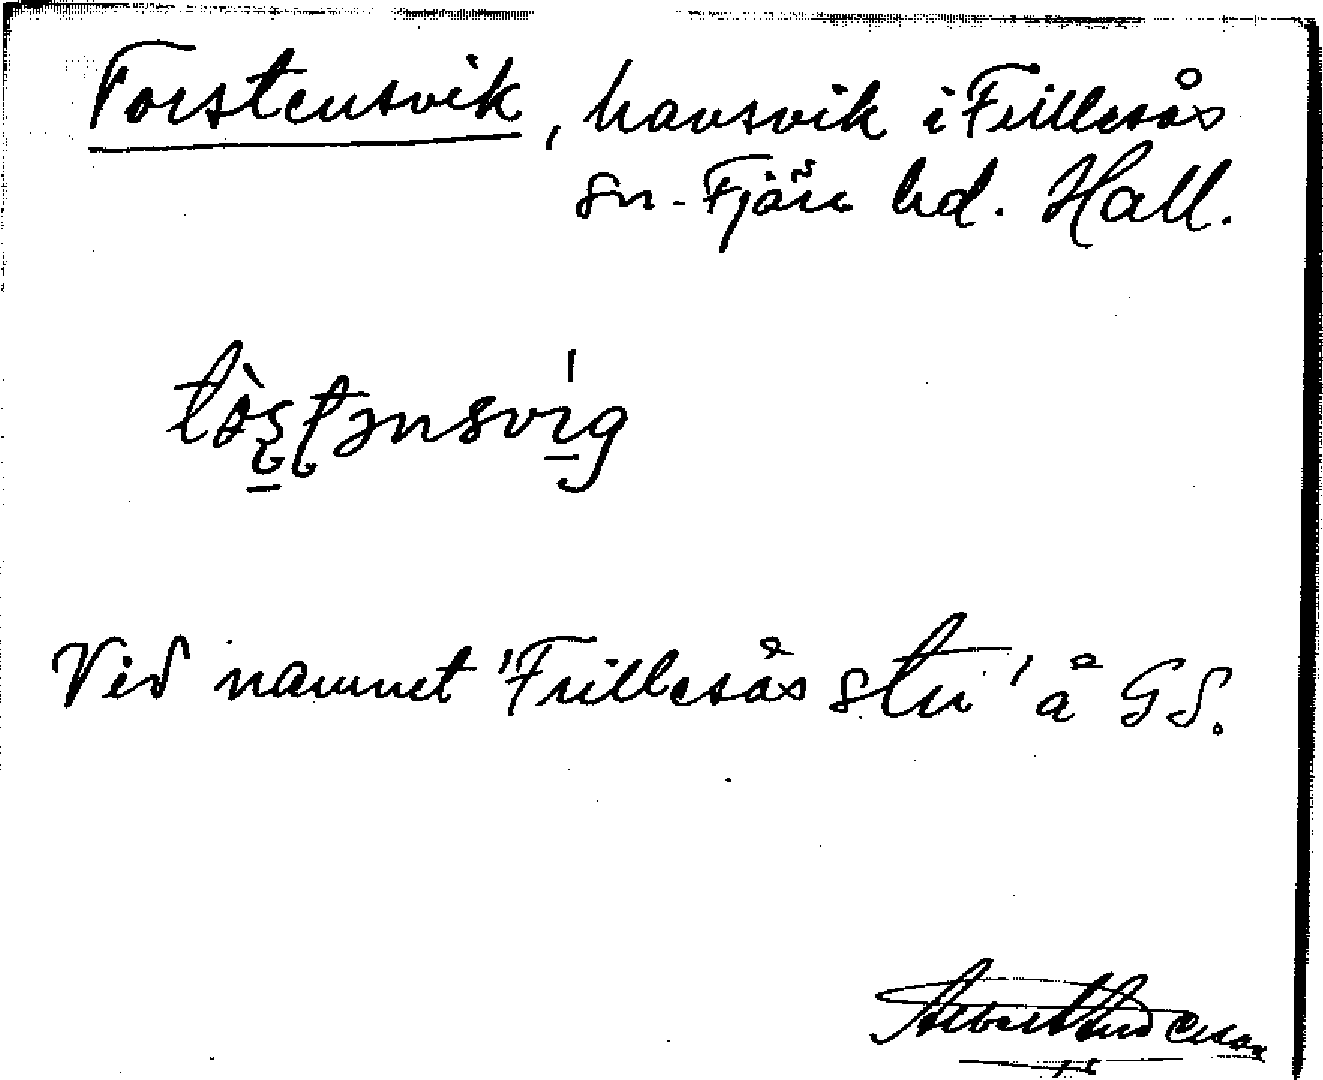 Torstensvik, havsvik i Frillesås
sn. Fjäre hd. Hall.
Vid namnet 'Frillesås stn' å GS.
Albert Anderson